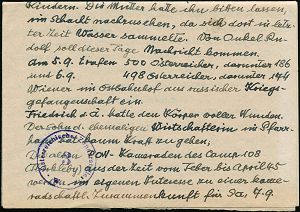 Kindern. Die Mutter hatte ihn bitten lassen,
im Schacht nachzuschauen, da sich dort in letz-
ter Zeit Wasser sammelte. Von Onkel Ru-
dolf soll dieser Tage Nachricht kommen.
Am 5.9. trafen 500 Österreicher, darunter 186
und 6.9. 498 Österreicher, darunter 144
Wiener im Ostbahnhof aus russischer Kriegs-
gefangenschaft ein.
Friedrich s. Ä. hatte den Körper voller Wunden.
ehemaligen Wirtschafterin im Pfarr-
kaum Kraft zu gehen,
allen POW-Kameraden des Camp 108
aus der Zeit vom Feber bis April 45
im eigenen Interesse zu einer kame-
radschaftl. Zusammenkunft für Sa, 7.9.